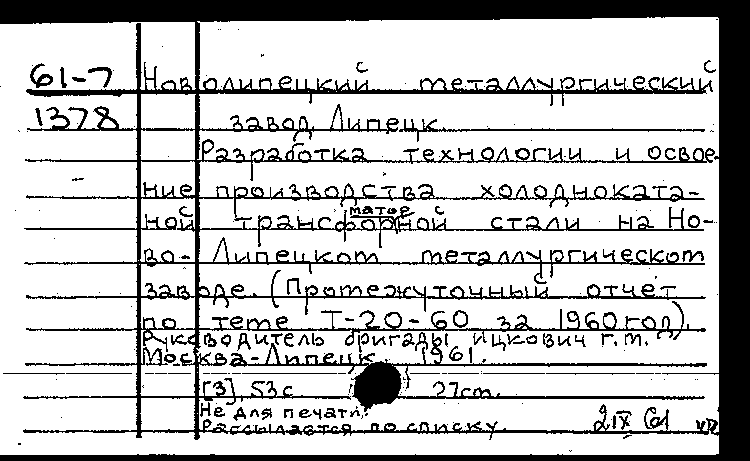 61-7 Новолипецкий металлургический
1378 завод, Липецк.
Разработка технологии и освое-
ние производства холодноката-
ной трансформаторной стали на Но-
во-Липецком металлургическом
заводе. (Промежуточный отчет
по теме Т-20-60 за 1960 год).
Руководитель бригады Ицкович Г.М.
Москва-Липецк, 1961.
[3], 53 с. 27 см.
Не для печати.
Рассылается по списку. 2 IX 61